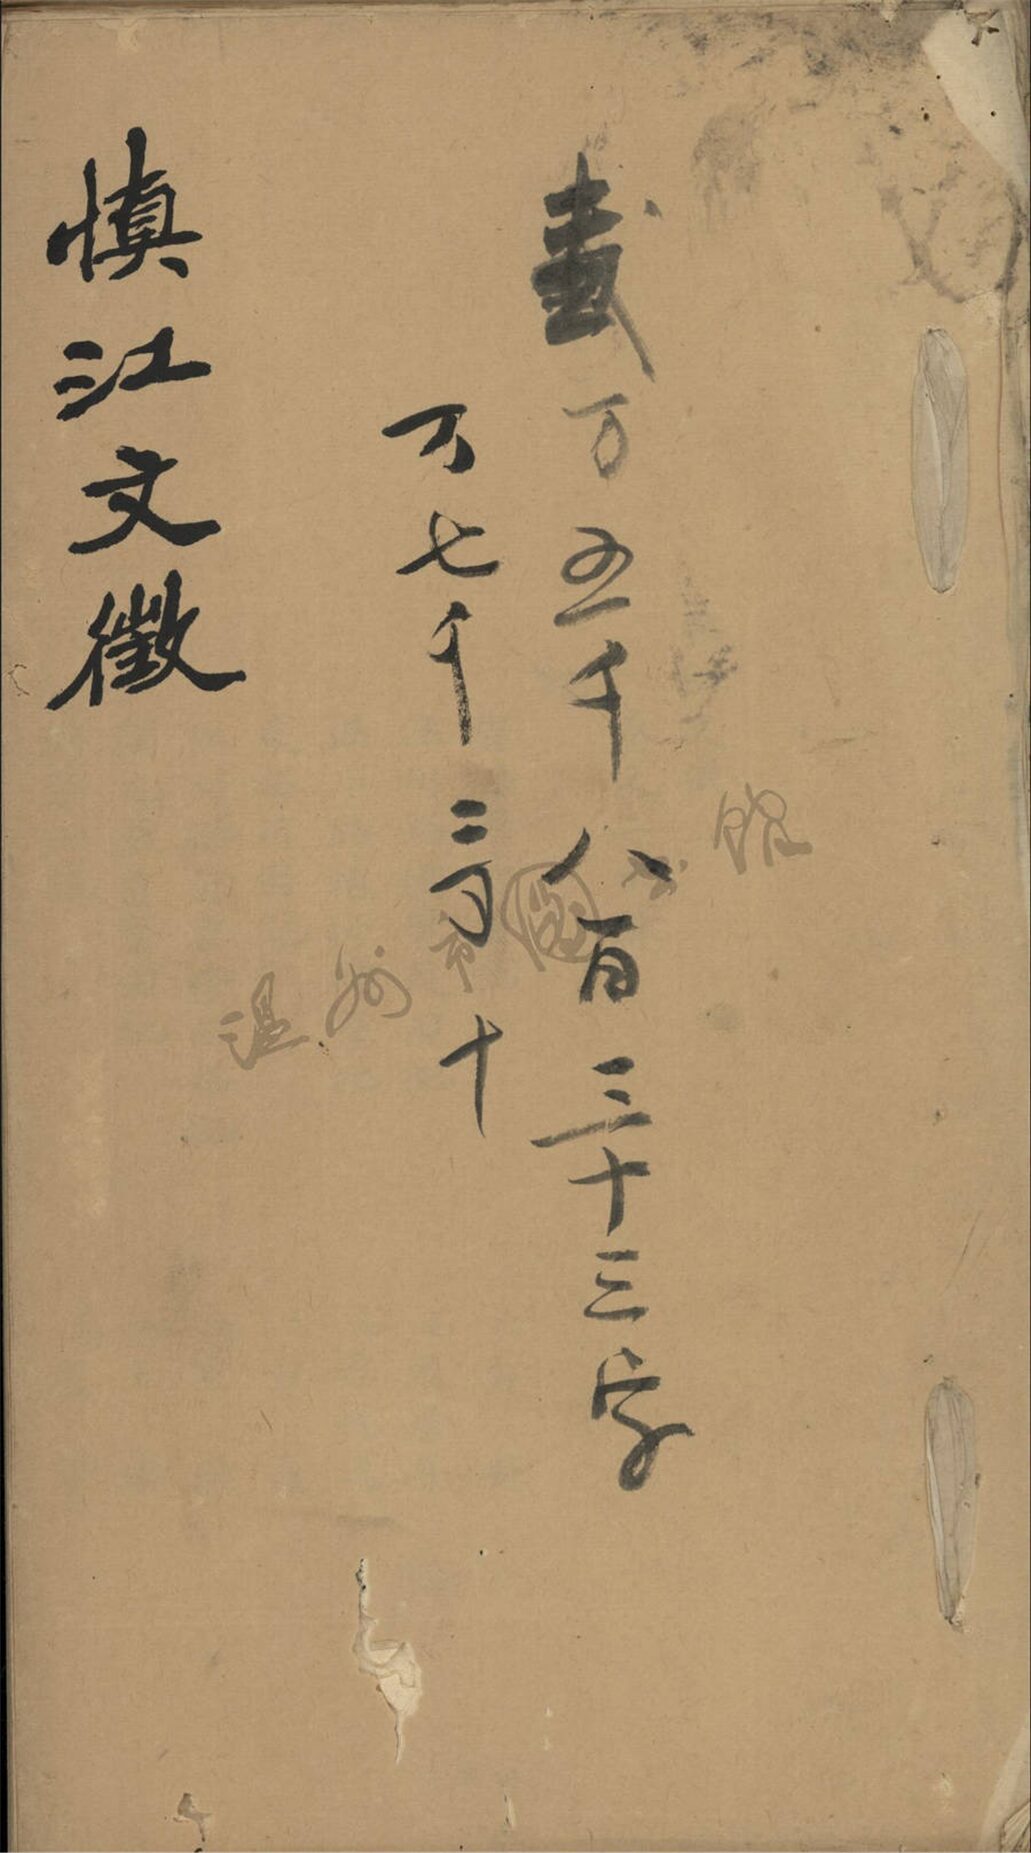 万五千八百三十三字
万七千二百十
慎江文徵
温州市圖书館